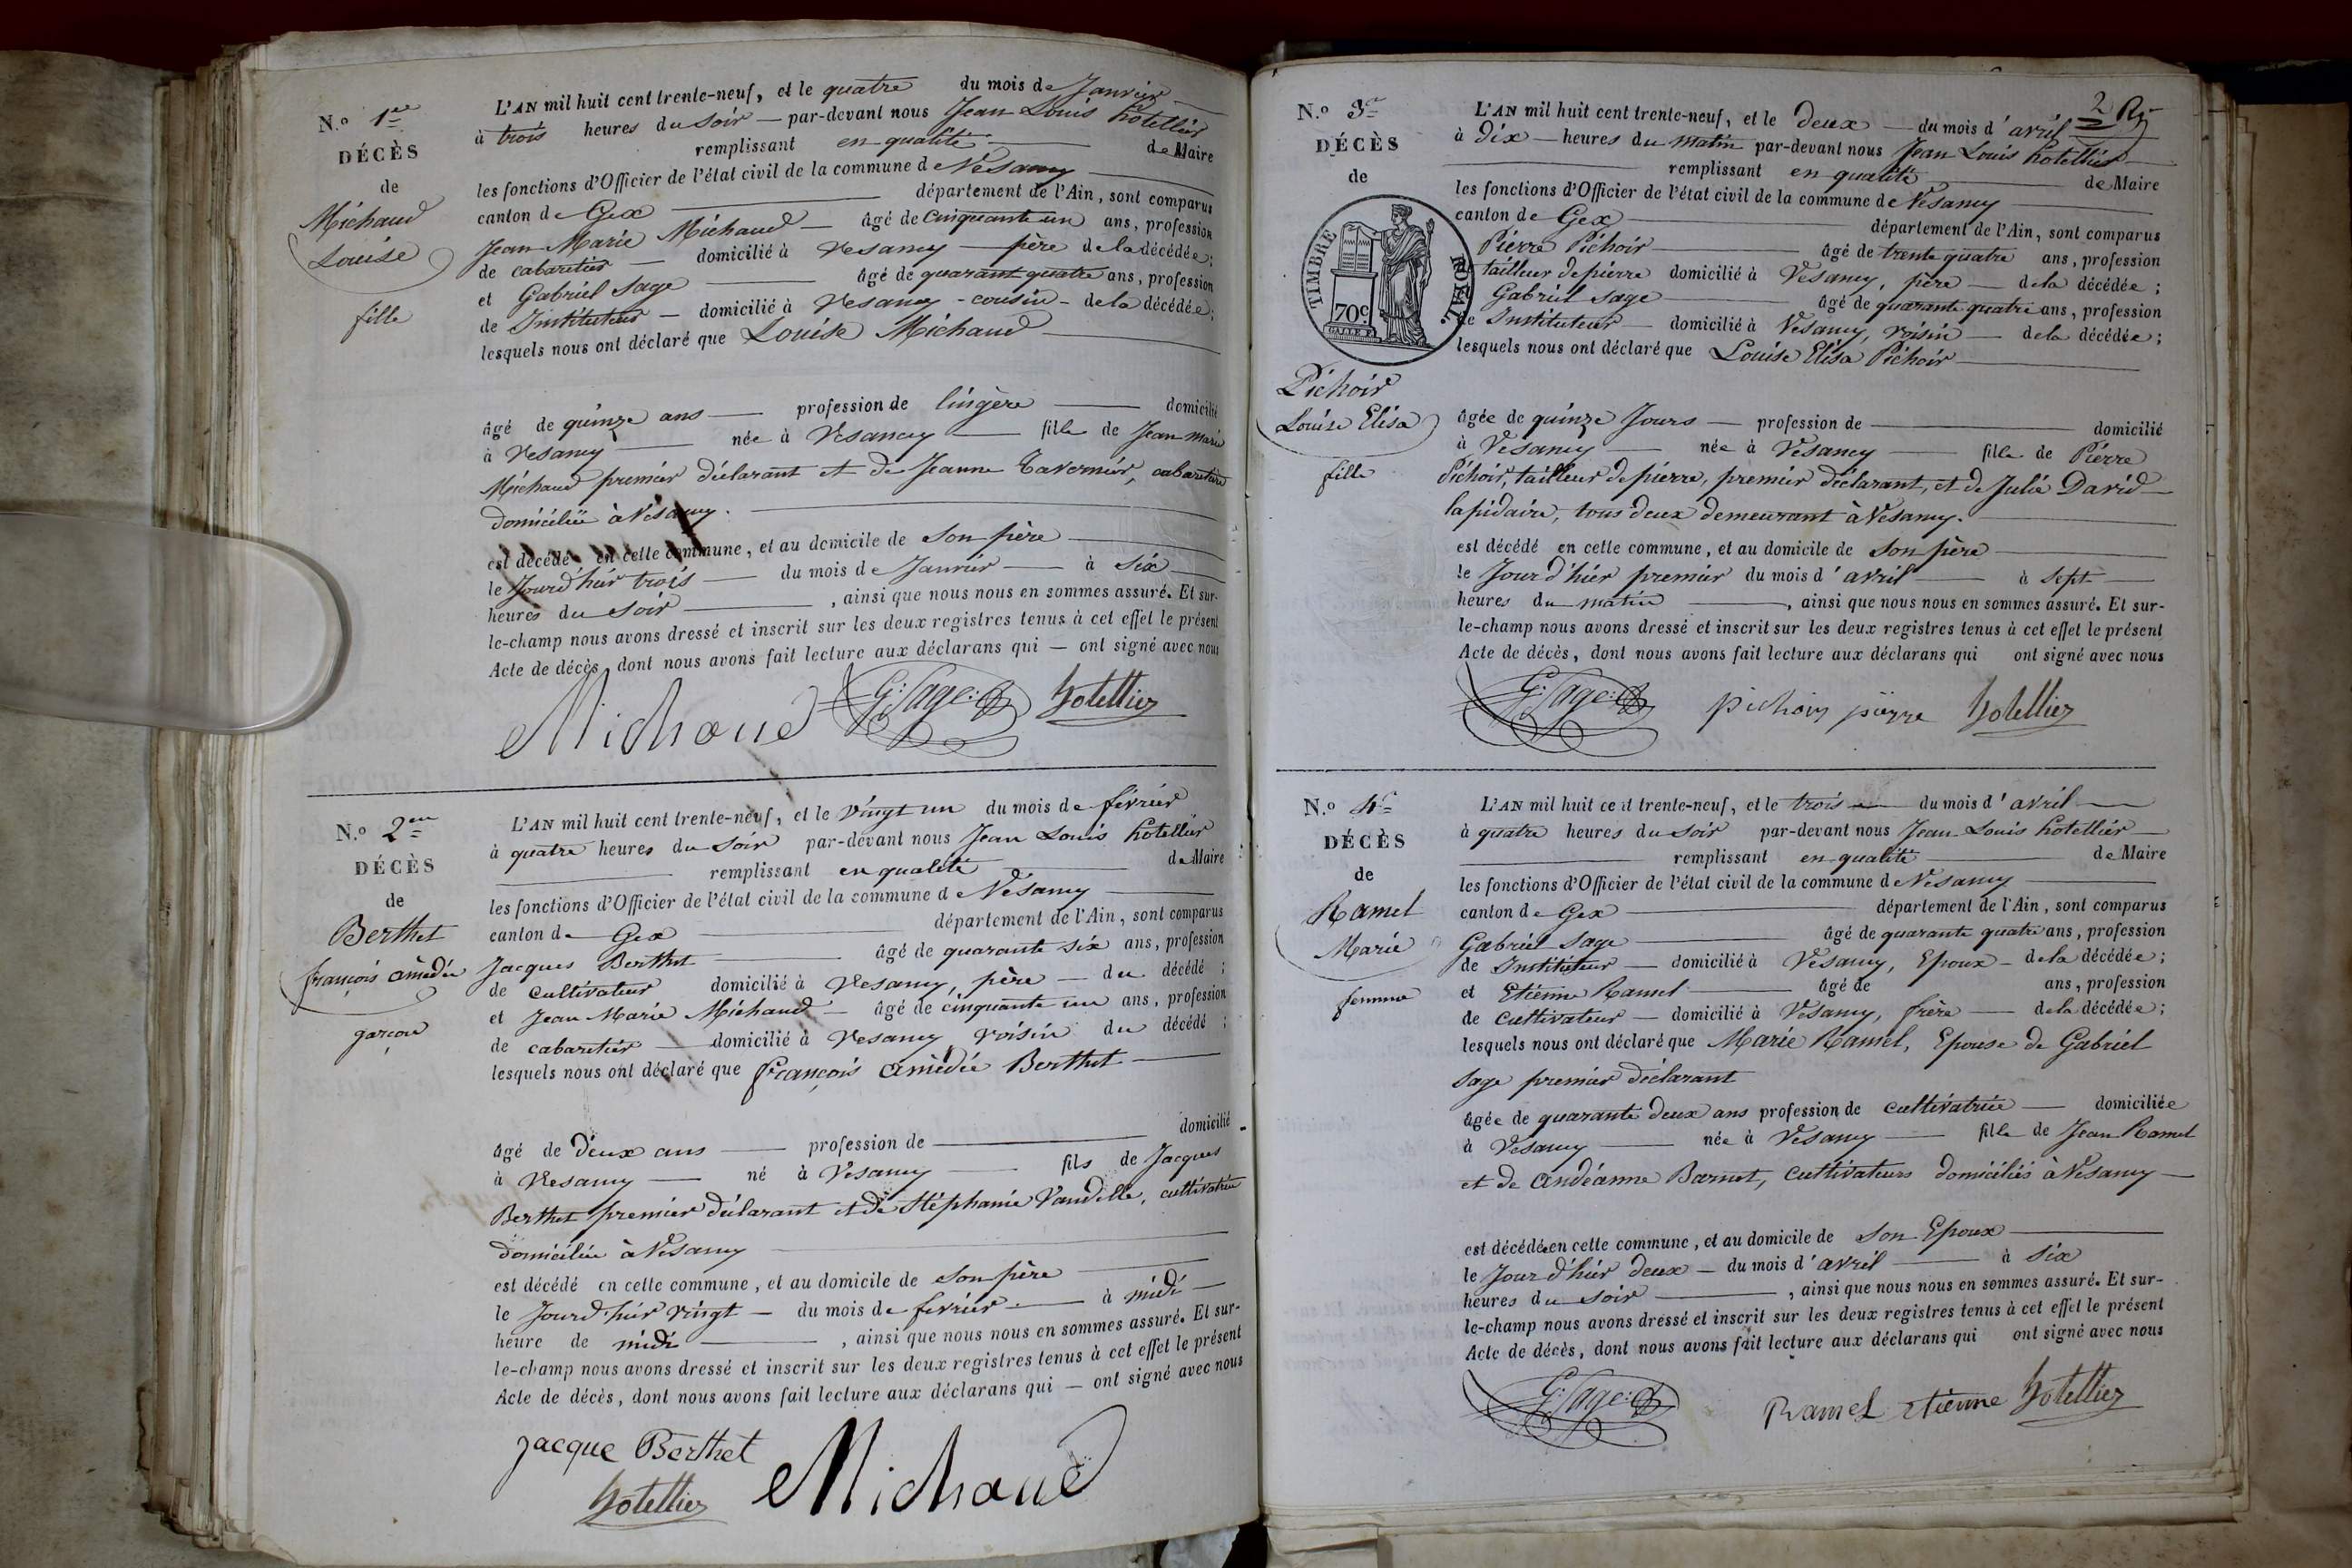 N.º 1er
DÉCÈS
de
Michaud
Louise
fille
L'AN mil huit cent trente-neuf, et le quatre du mois de Janvier
à trois heures du soir — par-devant nous Jean Louis hotellier
remplissant en qualité de Maire
les fonctions d'Officier de l'état civil de la commune de Vesancy
canton de Gex département de l'Ain, sont comparus
Jean Marie Michaud — âgé de Cinquante un ans, profession
de cabaretier — domicilié à Vesancy — père de la décédée;
et Gabriel Sage âgé de quarante quatre ans, profession
de Instituteur — domicilié à Vesancy - cousin - de la décédée;
lesquels nous ont déclaré que Louise Michaud
âgé de quinze ans — profession de lingère — domicilié
à Vesancy née à Vesancy — fille de Jean Marie
Michaud premier déclarant et de Jeanne Tavernier, cabaretière
domiciliée à Vesancy.
est décédée en cette commune, et au domicile de son père
le Jourd'hier trois — du mois de Janvier — à six
heures du soir , ainsi que nous nous en sommes assuré. Et sur-
le-champ nous avons dressé et inscrit sur les deux registres tenus à cet effet le présent
Acte de décès, dont nous avons fait lecture aux déclarans qui — ont signé avec nous
Michaud G: Sage: hotellier
N.º 2em
DÉCÈS
de
Berthet
françois amédée
garçon
L'AN mil huit cent trente-neuf, et le vingt un du mois de février
à quatre heures du soir par-devant nous Jean Louis hotellier
remplissant en qualité de Maire
les fonctions d'Officier de l'état civil de la commune de Vesancy
canton de Gex département de l'Ain, sont comparus
Jacques Berthet âgé de quarante six ans, profession
de cultivateur domicilié à Vesancy, père — du décédé;
et Jean Marie Michaud — âgé de cinquante un ans, profession
de cabaretier — domicilié à Vesancy voisin du décédé;
lesquels nous ont déclaré que françois amédée Berthet
âgé de deux ans — profession de domicilié
à Vesancy — né à Vesancy — fils de Jacques
Berthet premier déclarant et de Stéphanie Vandelle, cultivatrice
domiciliée à Vesancy
est décédé en cette commune, et au domicile de son père
le Jourd'hier vingt — du mois de fevrier — à midi
heure de midi , ainsi que nous nous en sommes assuré. Et sur-
le-champ nous avons dressé et inscrit sur les deux registres tenus à cet effet le présent
Acte de décès, dont nous avons fait lecture aux déclarans qui — ont signé avec nous
Jacque Berthet
hotellier Michaud
2 
N.º 3e
DÉCÈS
de
TIMBRE ROYAL
70c
Pichoir
Louise Elisa
fille
L'AN mil huit cent trente-neuf, et le deux — du mois d'avril
à dix — heures du matin par-devant nous Jean Louis hotellier
remplissant en qualité de Maire
les fonctions d'Officier de l'état civil de la commune de Vesancy
canton de Gex département de l'Ain, sont comparus
Pierre Pichoir âgé de trente quatre ans, profession
tailleur de pierre domicilié à Vesancy, père — de la décédée;
Gabriel Sage âgé de quarante quatre ans, profession
de Instituteur — domicilié à Vesancy, voisin — de la décédée;
lesquels nous ont déclaré que Louise Elisa Pichoir
âgée de quinze Jours — profession de domicilié
à Vesancy — née à Vesancy — fille de Pierre
Pichoir, tailleur de pierre, premier déclarant, et de Julie David
lapidaire, tous deux demeurant à Vesancy.
est décédé en cette commune, et au domicile de son père
le Jour d'hier premier du mois d'avril — à sept
heures du matin , ainsi que nous nous en sommes assuré. Et sur-
le-champ nous avons dressé et inscrit sur les deux registres tenus à cet effet le présent
Acte de décès, dont nous avons fait lecture aux déclarans qui ont signé avec nous
G: Sage: pichoir pierre hotellier
N.º 4e
DÉCÈS
de
Ramel
Marie
femme
L'AN mil huit cent trente-neuf, et le trois — du mois d'avril
à quatre heures du soir par-devant nous Jean Louis hotellier
remplissant en qualité de Maire
les fonctions d'Officier de l'état civil de la commune de Vesancy
canton de Gex département de l'Ain, sont comparus
Gabriel Sage âgé de quarante quatre ans, profession
de Instituteur — domicilié à Vesancy, Epoux - de la décédée;
et Etienne Ramel âgé de ans, profession
de cultivateur — domicilié à Vesancy, frère — de la décédée;
lesquels nous ont déclaré que Marie Ramel, Epouse de Gabriel
Sage premier déclarant
âgée de quarante deux ans profession de cultivatrice — domiciliée
à Vesancy — née à Vesancy — fille de Jean Ramel
et de Andéanne Barnet, cultivateurs domiciliés à Vesancy
est décédée en cette commune, et au domicile de son Epoux
le Jour d'hier deux — du mois d'avril — à six
heures du soir , ainsi que nous nous en sommes assuré. Et sur-
le-champ nous avons dressé et inscrit sur les deux registres tenus à cet effet le présent
Acte de décès, dont nous avons fait lecture aux déclarans qui ont signé avec nous
G: Sage: Ramel etienne hotellier